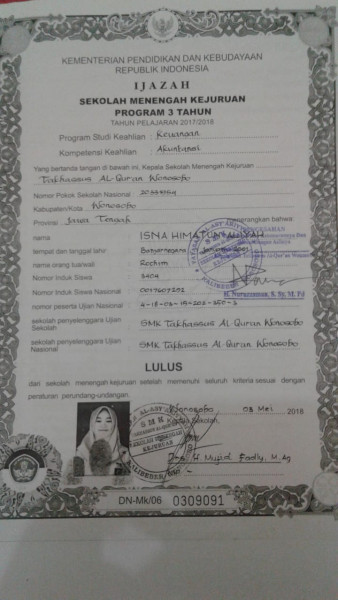 KEMENTERIAN PENDIDIKAN DAN KEBUDAYAAN
REPUBLIK INDONESIA
IJAZAH
SEKOLAH MENENGAH KEJURUAN
PROGRAM 3 TAHUN
TAHUN PELAJARAN 2017/2018
Program Studi Keahlian : Keuangan
Kompetensi Keahlian : Akuntansi
Yang bertanda tangan di bawah ini, Kepala Sekolah Menengah Kejuruan
Takhassus Al-Qur'an Wonosobo
Nomor Pokok Sekolah Nasional
Kabupaten/Kota Wonosobo
Provinsi Jawa Tengah menerangkan bahwa:
nama ISNA HIMATUN
tempat dan tanggal lahir Banjarnegara
nama orang tua/wali Rochim
Nomor Induk Siswa 3404
Nomor Induk Siswa Nasional
nomor peserta Ujian Nasional
sekolah penyelenggara Ujian Sekolah SMK Takhassus Al Qur'an Wonosobo
sekolah penyelenggara Ujian Nasional SMK Takhassus Al Qur'an Wonosobo
LULUS
dari sekolah menengah kejuruan setelah memenuhi seluruh kriteria sesuai dengan
peraturan perundang-undangan.
Wonosobo 03 Mei 2018
Kepala Sekolah,
DN-Mk/06 0309091